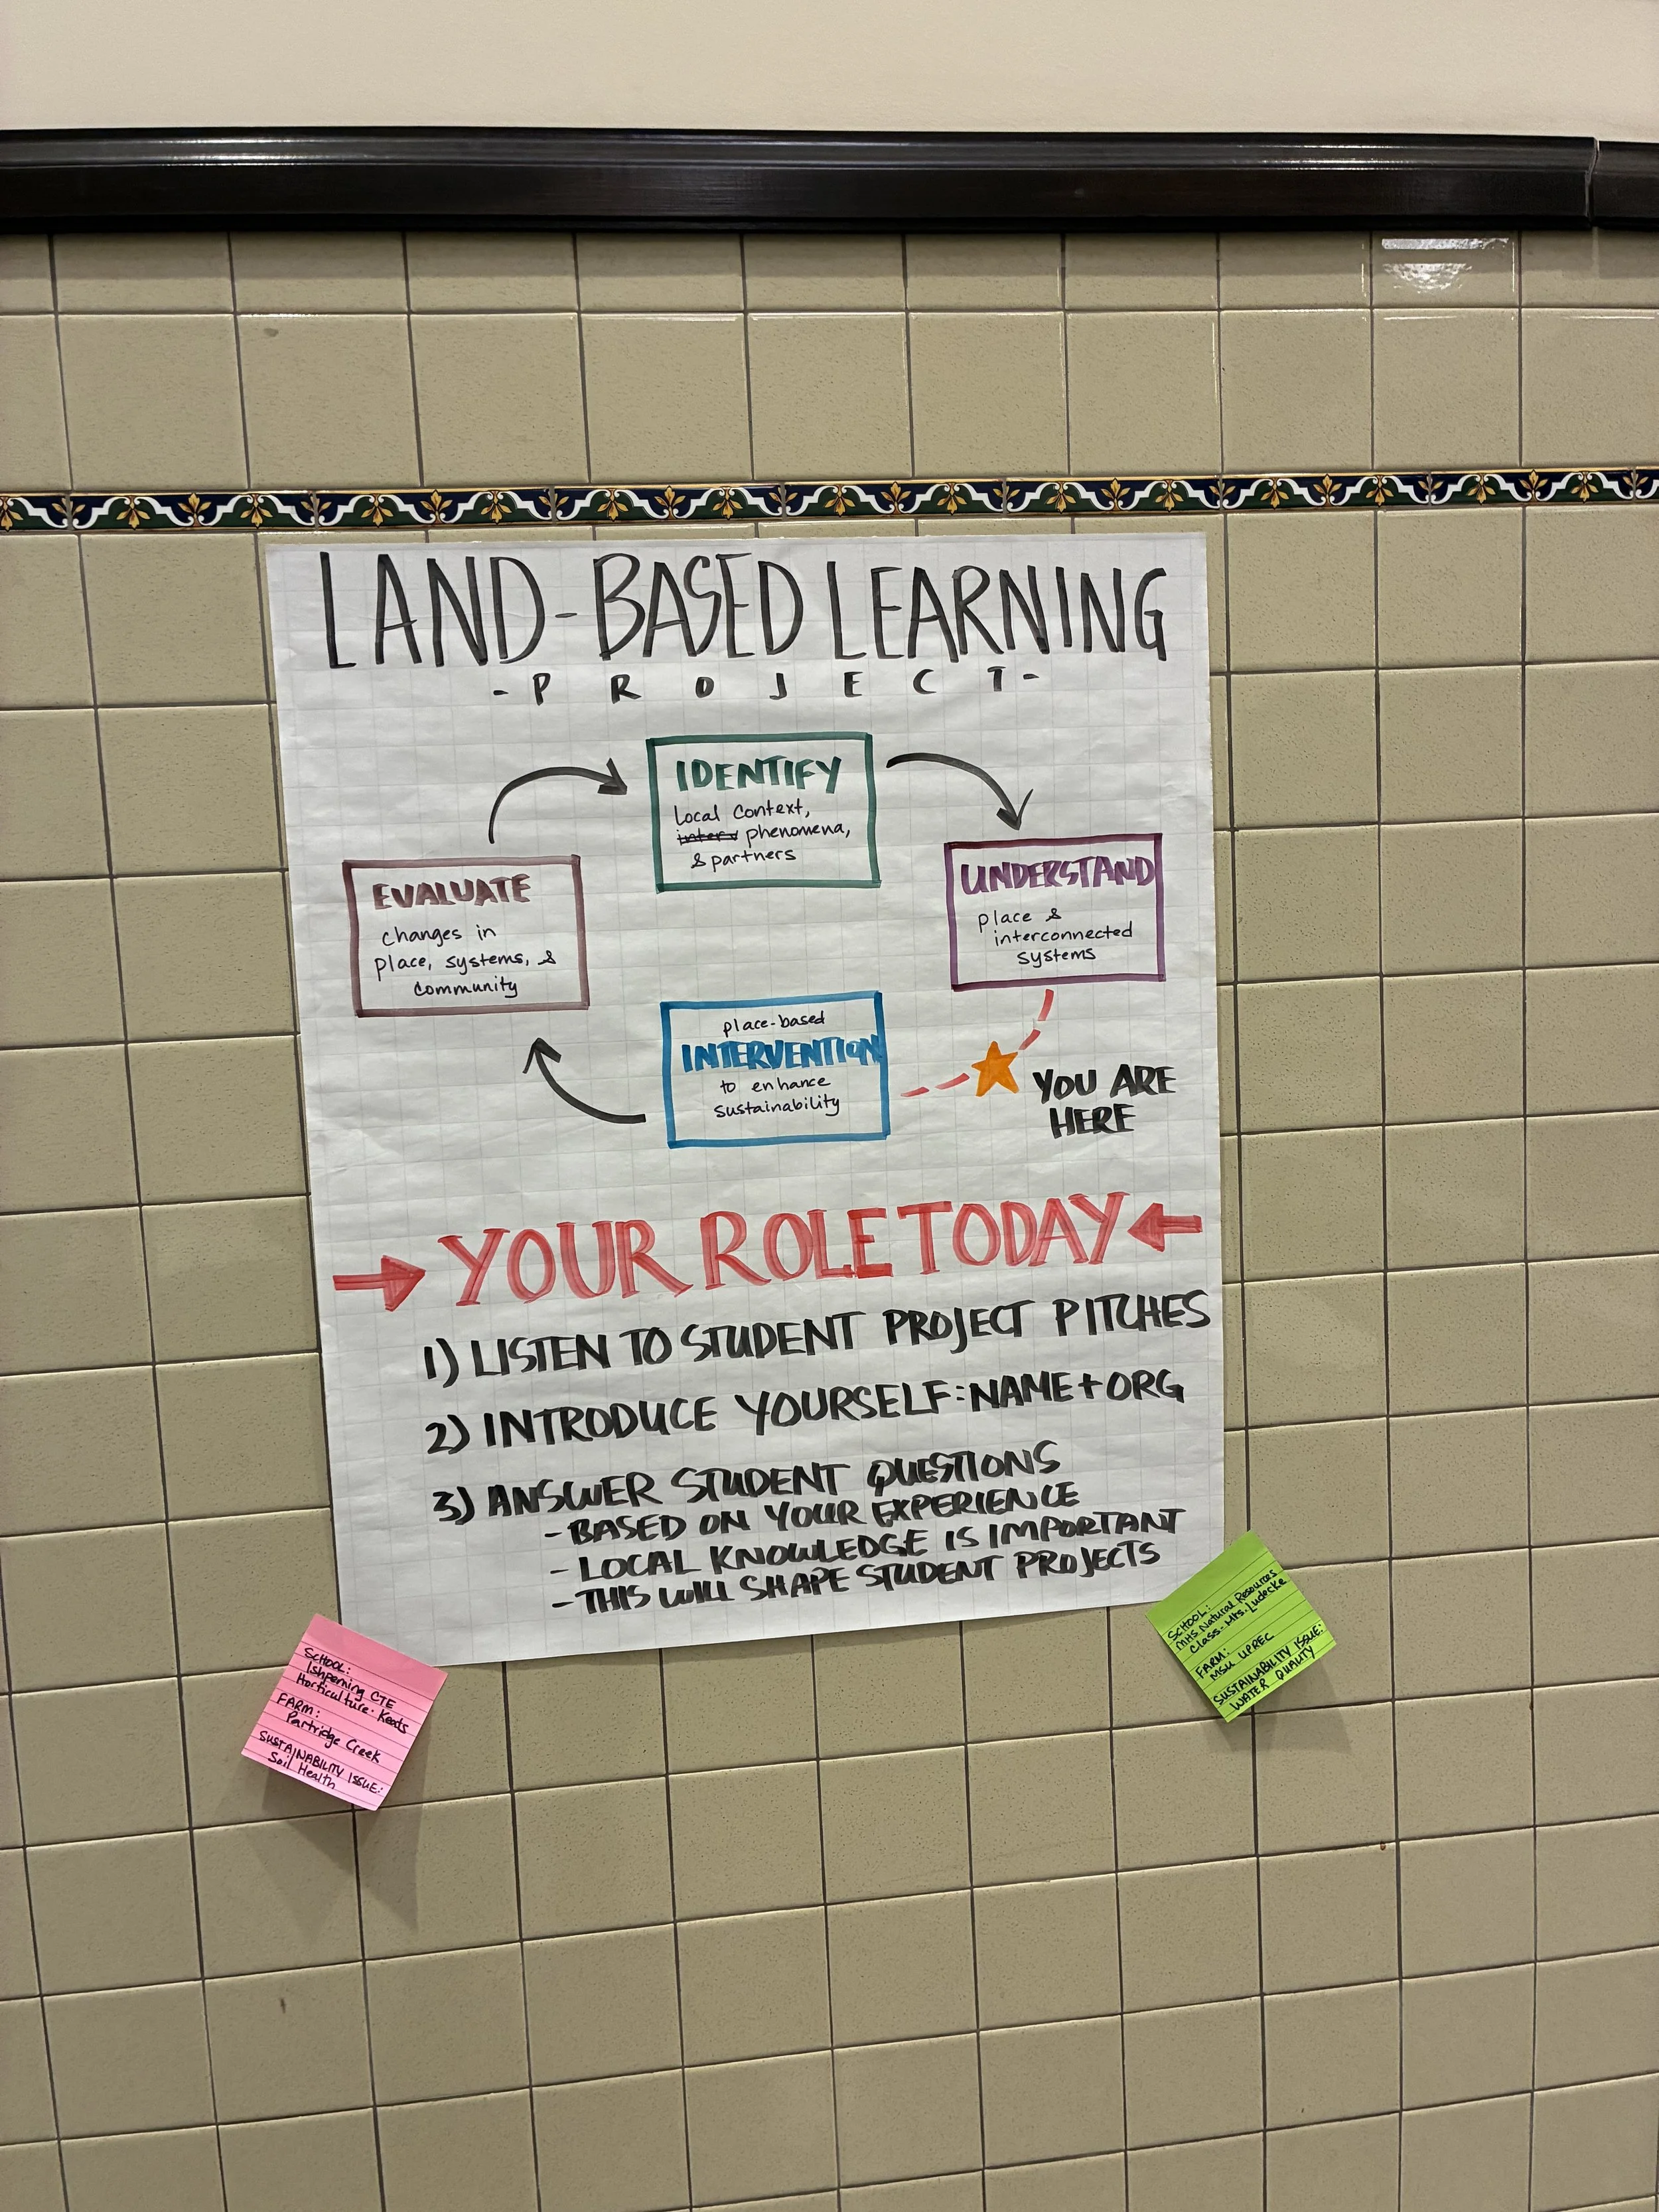 LAND-BASED LEARNING
-PROJECT-
IDENTIFY
local context,
phenomena,
& partners
UNDERSTAND
place &
interconnected
systems
EVALUATE
changes in
place, systems, &
community
place-based
INTERVENTION
to enhance
sustainability
YOU ARE
HERE
YOUR ROLE TODAY
1) LISTEN TO STUDENT PROJECT PITCHES
2) INTRODUCE YOURSELF: NAME + ORG
3) ANSWER STUDENT QUESTIONS
- BASED ON YOUR EXPERIENCE
- LOCAL KNOWLEDGE IS IMPORTANT
- THIS WILL SHAPE STUDENT PROJECTS
SCHOOL:
Ishpeming CTE
Horticulture - Keats
FARM:
Partridge Creek
SUSTAINABILITY ISSUE:
Soil Health
SCHOOL:
MHS Natural Resources
Class - Mrs. Ludecke
FARM:
MSU UPREC
SUSTAINABILITY ISSUE:
WATER QUALITY